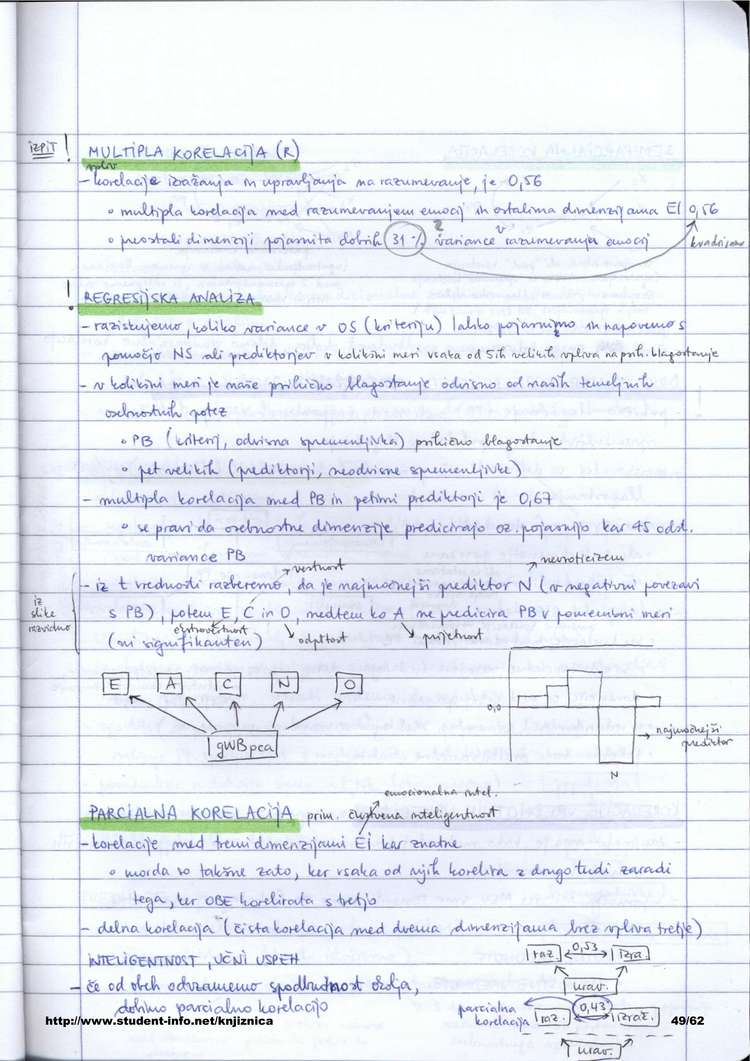 izpit ! MULTIPLA KORELACIJA (R)
vpliv
- korelacije izražanja in upravljanja na razumevanje, je 0,56
◦ multipla korelacija med razumevanjem emocij in ostalima dimenzijama EI 0,56
◦ preostali dimenziji pojasnita dobrih 31 % variance v razumevanja emocij
kvadriramo
! REGRESIJSKA ANALIZA
- raziskujemo, koliko variance v OS (kriteriju) lahko pojasnimo in napovemo s
pomočjo NS ali prediktorjev v kolikšni meri vsaka od 5ih velikih vpliva na psih. blagostanje
- v kolikšni meri je naše psihično blagostanje odvisno od naših temeljnih
osebnostnih potez
◦ PB (kriterij, odvisna spremenljivka) psihično blagostanje
◦ pet velikih (prediktorji, neodvisne spremenljivke)
- multipla korelacija med PB in petimi prediktorji je 0,67
◦ se pravi da osebnostne dimenzije predicirajo oz. pojasnijo kar 45 odst.
variance PB
vestnost
nevroticizem
iz slike razvidno
- iz t vrednosti razberemo, da je najmočnejši prediktor N (v negativni povezavi
s PB), potem E, C in O, medtem ko A ne predicira PB v pomembni meri
(ni signifikanten)
ekstravertnost
odprtost
prijetnost
E A C N O
gWBpca
0,0
najmočnejši
prediktor
N
emocionalna intel.
PARCIALNA KORELACIJA prim. čustvena inteligentnost
- korelacije med tremi dimenzijami EI kar znatne
◦ morda so takšne zato, ker vsaka od njih korelira z drugo tudi zaradi
tega, ker OBE korelirata s tretjo
- delna korelacija (čista korelacija med dvema dimenzijama brez vpliva tretje)
INTELIGENTNOST, UČNI USPEH
raz 0,53 izra.
urav.
- če od obeh odvzamemo spodbudnost okolja,
dobimo parcialno korelacijo
parcialna
korelacija
raz. 0,43 izraž.
urav.
http://www.student-info.net/knjiznica
49/62